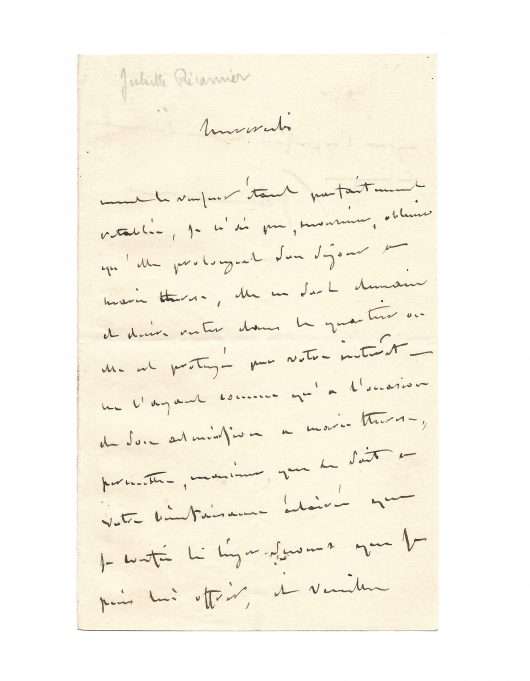 Juliette Récamier
mercredi
étant parfaitement
rétablie, je n'ai pu, monsieur, obtenir
qu'elle prolongeat son séjour a
marie therese, elle en sort demain
et desire rester dans le quartier ou
elle est protegée par votre intérêt
ne l'ayant connue qu'a l'occasion
de son admission a marie therese,
permettez, monsieur que ce soit a
votre bienfaisance éclairée que
je confie le léger secours que je
puis lui offrir, et veuillez